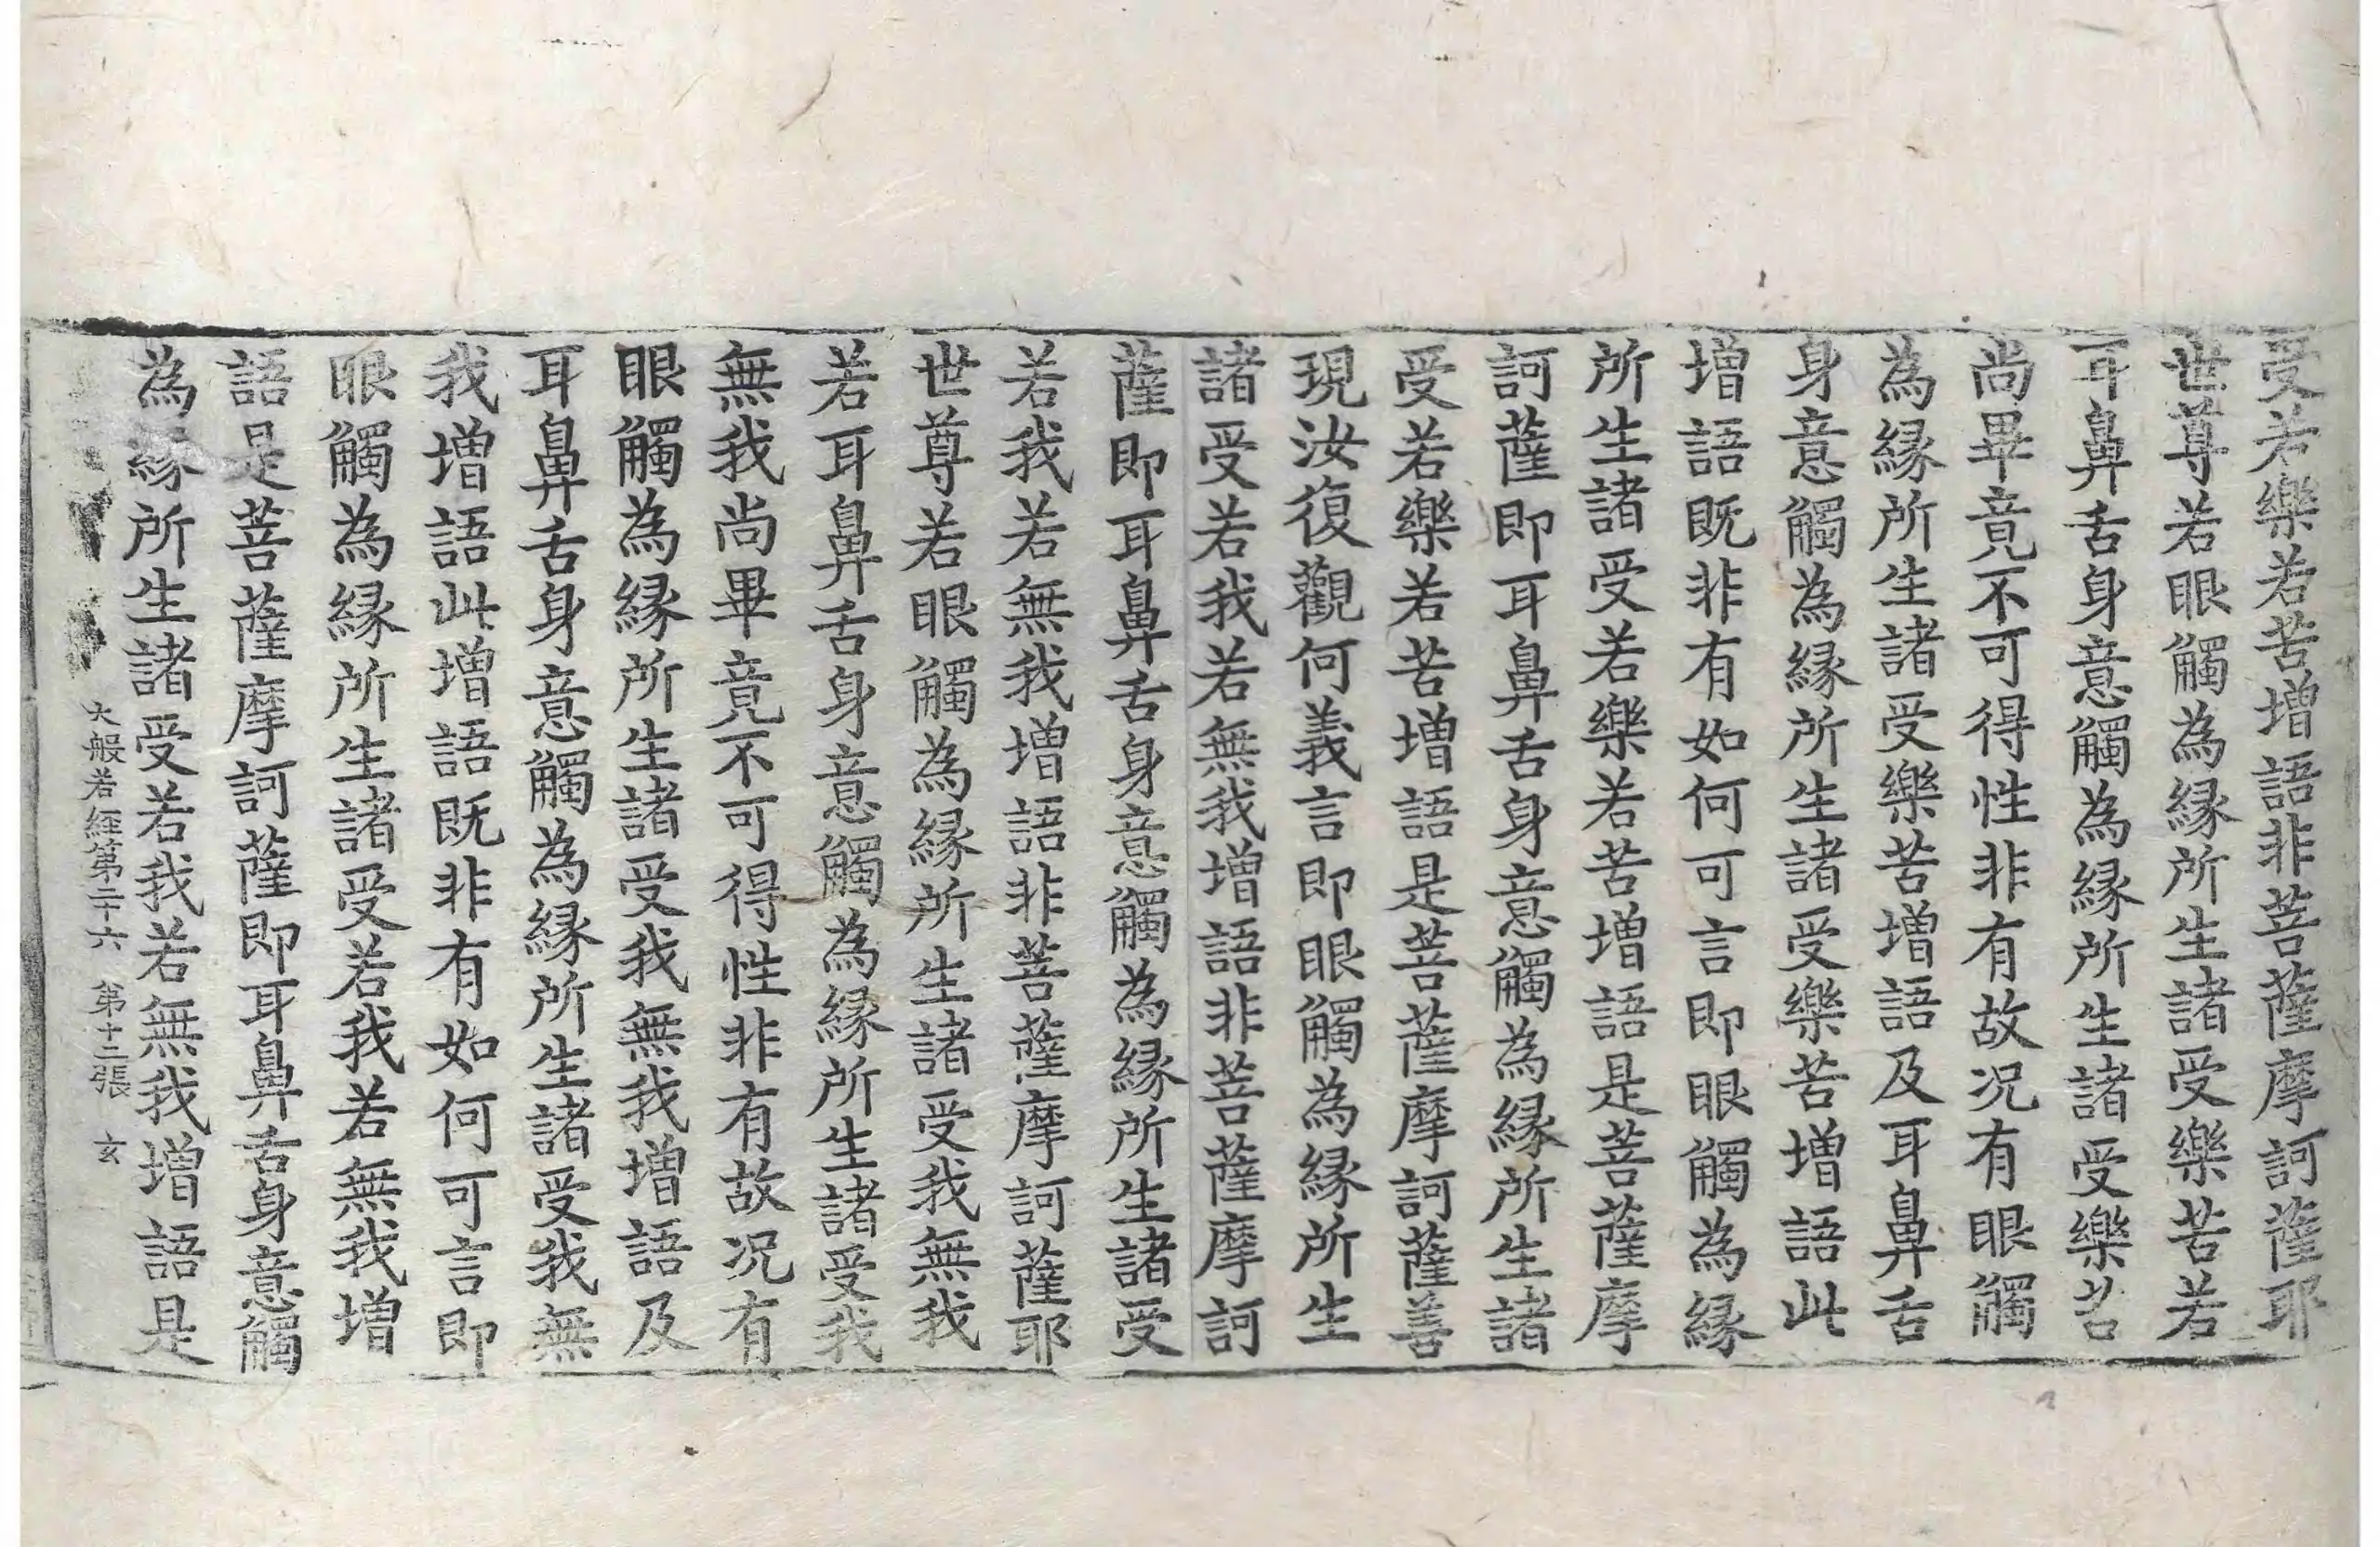 受若樂若苦增語非菩薩摩訶薩耶
世尊若眼觸為緣所生諸受樂苦若
耳鼻舌身意觸為緣所生諸受樂苦
尚畢竟不可得性非有故况有眼觸
為緣所生諸受樂苦增語及耳鼻舌
身意觸為緣所生諸受樂苦增語此
增語既非有如何可言即眼觸為緣
所生諸受若樂若苦增語是菩薩摩
訶薩即耳鼻舌身意觸為緣所生諸
受若樂若苦增語是菩薩摩訶薩善
現汝復觀何義言即眼觸為緣所生
諸受若我若無我增語非菩薩摩訶
薩即耳鼻舌身意觸為緣所生諸受
若我若無我增語非菩薩摩訶薩耶
世尊若眼觸為緣所生諸受我無我
若耳鼻舌身意觸為緣所生諸受我
無我尚畢竟不可得性非有故况有
眼觸為緣所生諸受我無我增語及
耳鼻舌身意觸為緣所生諸受我無
我增語此增語既非有如何可言即
眼觸為緣所生諸受若我若無我增
語是菩薩摩訶薩即耳鼻舌身意觸
為緣所生諸受若我若無我增語是
大般若經第二十六 第十二張 玄